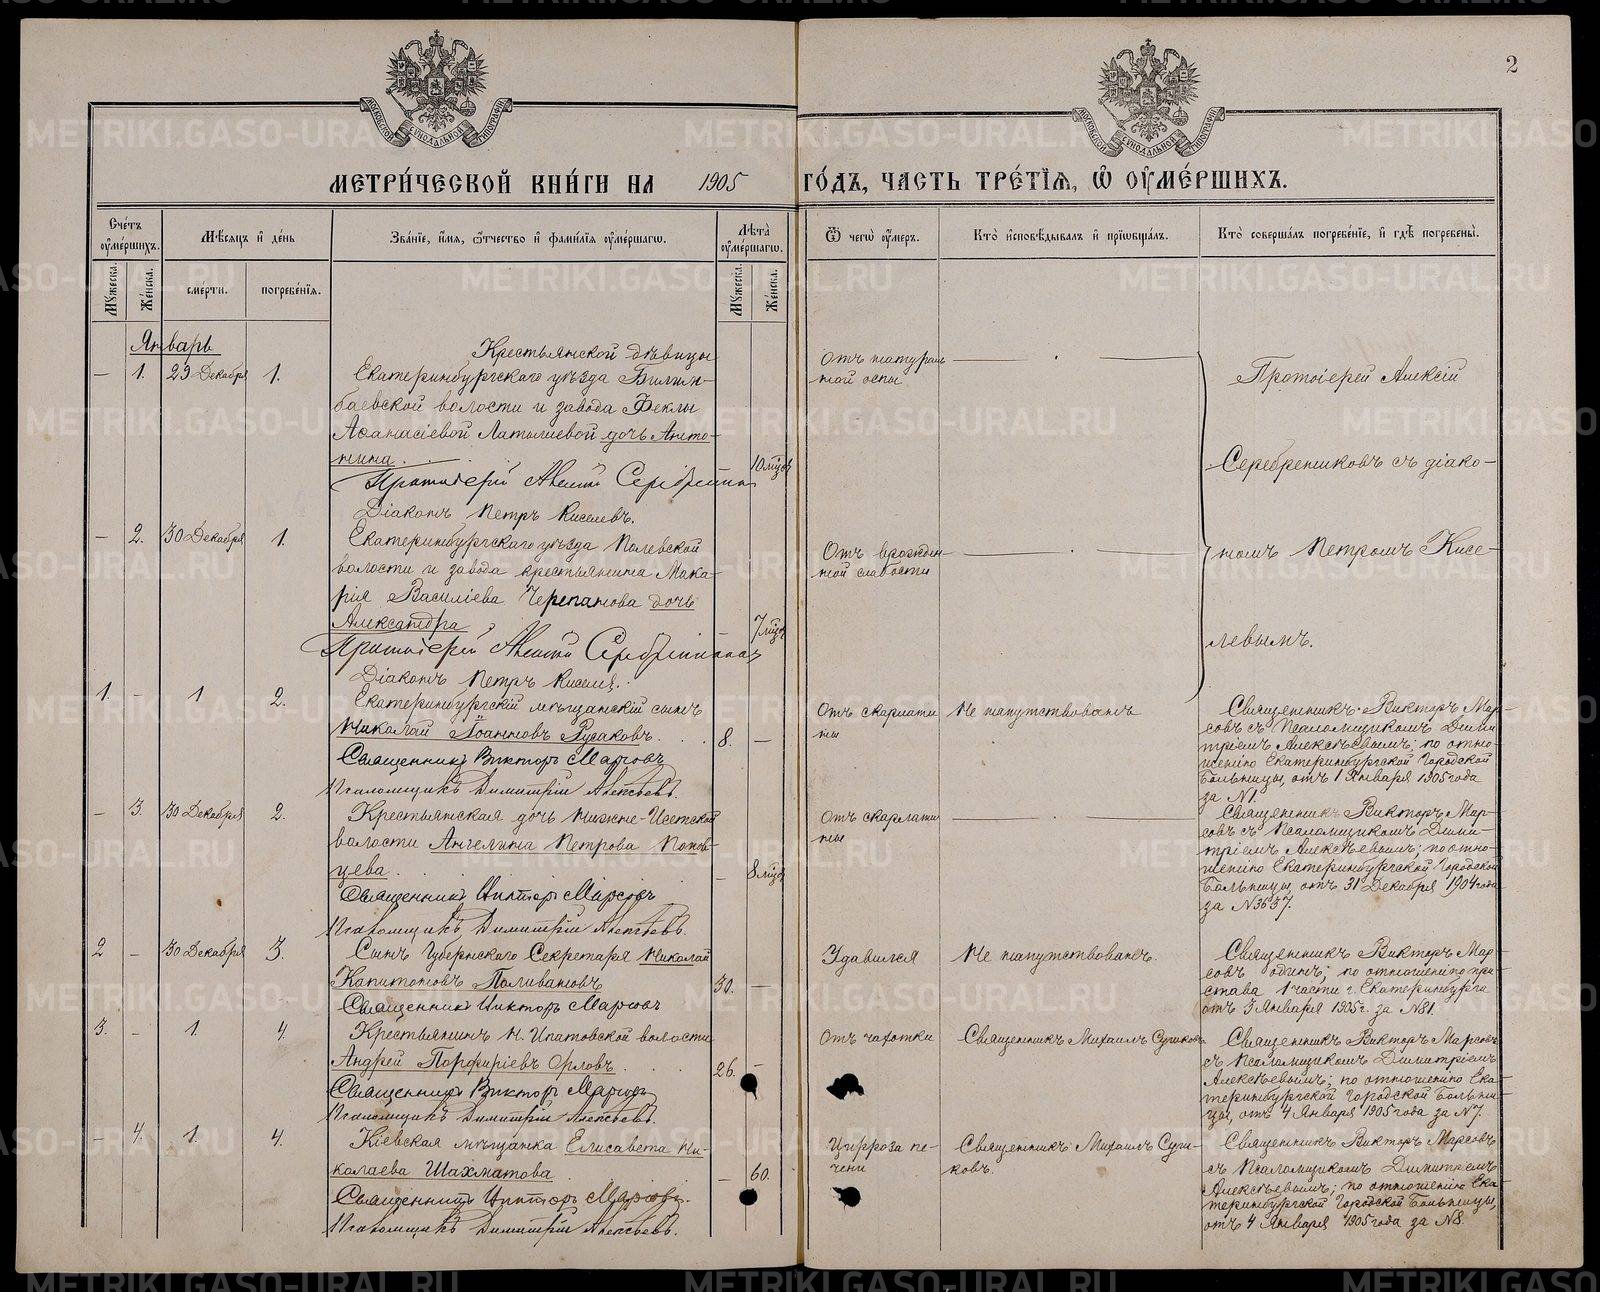 2
МЕТРИ́ЧЕСКОЙ КНИ́ГИ НА 1905 ГО́ДЪ, ЧАСТЬ ТРЕ́ТІѦ, Ѽ ОУМЕ́РШИХЪ.
Сче́тъ оуме́ршихъ.
Мѣ́сяцъ и де́нь
Зва́нїе, и́мя, ѻ́тчество и фами́лїя оуме́ршагѡ.
Лѣ́та оуме́ршагѡ.
Ѿ чегѡ̀ оу́меръ.
Кто̀ исповѣ́дывалъ и прїѡбща́лъ.
Кто̀ соверша́лъ погребе́нїе, и гдѣ̀ погребены̀.
Мꙋ́жеска.
Же́нска.
сме́рти.
погребе́нїя.
Мꙋ́жеска.
Же́нска.
Январь
— 1. 29 Декабря 1.
Крестьянской дѣвицы
Екатеринбургскаго уѣзда Билим-
баевской волости и завода Феклы
Аѳанасіевой Латышевой дочь Анто-
нина
10 мѣс
Протоіерей Алексій Серебрениковъ
Діаконъ Петръ Киселевъ.
Отъ натураль
ной оспы
Протоіерей Алексій
Серебрениковъ съ діако-
номъ Петромъ Кисе-
левымъ.
— 2. 30 Декабря 1.
Екатеринбургскаго уѣзда Полевской
волости и завода крестьянина Мака-
рія Василіева Черепанова дочь
Александра
7 мѣс
Протоіерей Алексій Серебрениковъ
Діаконъ Петръ Киселе.
Отъ врожден
ной слабости
1. - 1 2.
Екатеринбургскій мѣщанскій сынъ
Николай Іоанновъ Русаковъ.
8. —
Священникъ Викторъ Марсовъ
Псаломщикъ Димитрій Алексѣевъ.
Отъ скарлати
ны
Не напутствованъ
Священникъ Викторъ Мар-
совъ съ Псаломщикомъ Дими
тріемъ Алексѣевымъ; по отно-
шенію Екатеринбургской Городской
Больницы, отъ 1 Января 1905 года
за №1.
— 3. 30 Декабря 2.
Крестьянская дочь Нижне-Исетской
волости Ангелина Петрова Попов-
цева
— 8 мѣс
Священникъ Викторъ Марсовъ
Псаломщикъ Димитрій Алексѣевъ.
Отъ скарлати
ны
Священникъ Викторъ Мар-
совъ съ Псаломщикомъ Дими-
тріемъ Алексѣевымъ; по отно-
шенію Екатеринбургской Городской
Больницы, отъ 31 Декабря 1904 года
за №3637.
2 — 30 Декабря 3.
Сынъ Губернскаго Секретаря Николай
Капитоновъ Поливановъ
30. —
Священникъ Викторъ Марсовъ
Удавился
Не напутствованъ.
Священникъ Викторъ Мар
совъ одинъ; по отношенію при-
става 1 части г. Екатеринбурга
отъ 3 Января 1905 г. за №81.
3. - 1 4.
Крестьянинъ Н. Ипатовской волости
Андрей Порфиріевъ Орловъ
26. -
Священникъ Викторъ Марсовъ
Псаломщикъ Димитрій Алексѣевъ.
Отъ чахотки
Священникъ Михаилъ
Священникъ Викторъ Марсовъ
съ Псаломщикомъ Димитріемъ
Алексѣевымъ; по отношенію Ека-
теринбургской Городской Больни-
цы, отъ 4 Января 1905 года за №7.
— 4. 1. 4.
Кіевская мѣщанка Елисавета Ни-
колаева Шахматова
— 60.
Священникъ Викторъ Марсовъ.
Псаломщикъ Димитрій Алексѣевъ.
Цирроза пе-
чени
Священникъ Михаилъ
Священникъ Викторъ Марсовъ
съ Псаломщикомъ Димитріемъ
Алексѣевымъ; по отношенію Ека-
теринбургской Городской Больницы,
отъ 4 Января 1905 года за №8.
METRIKI.GASO-URAL.RU